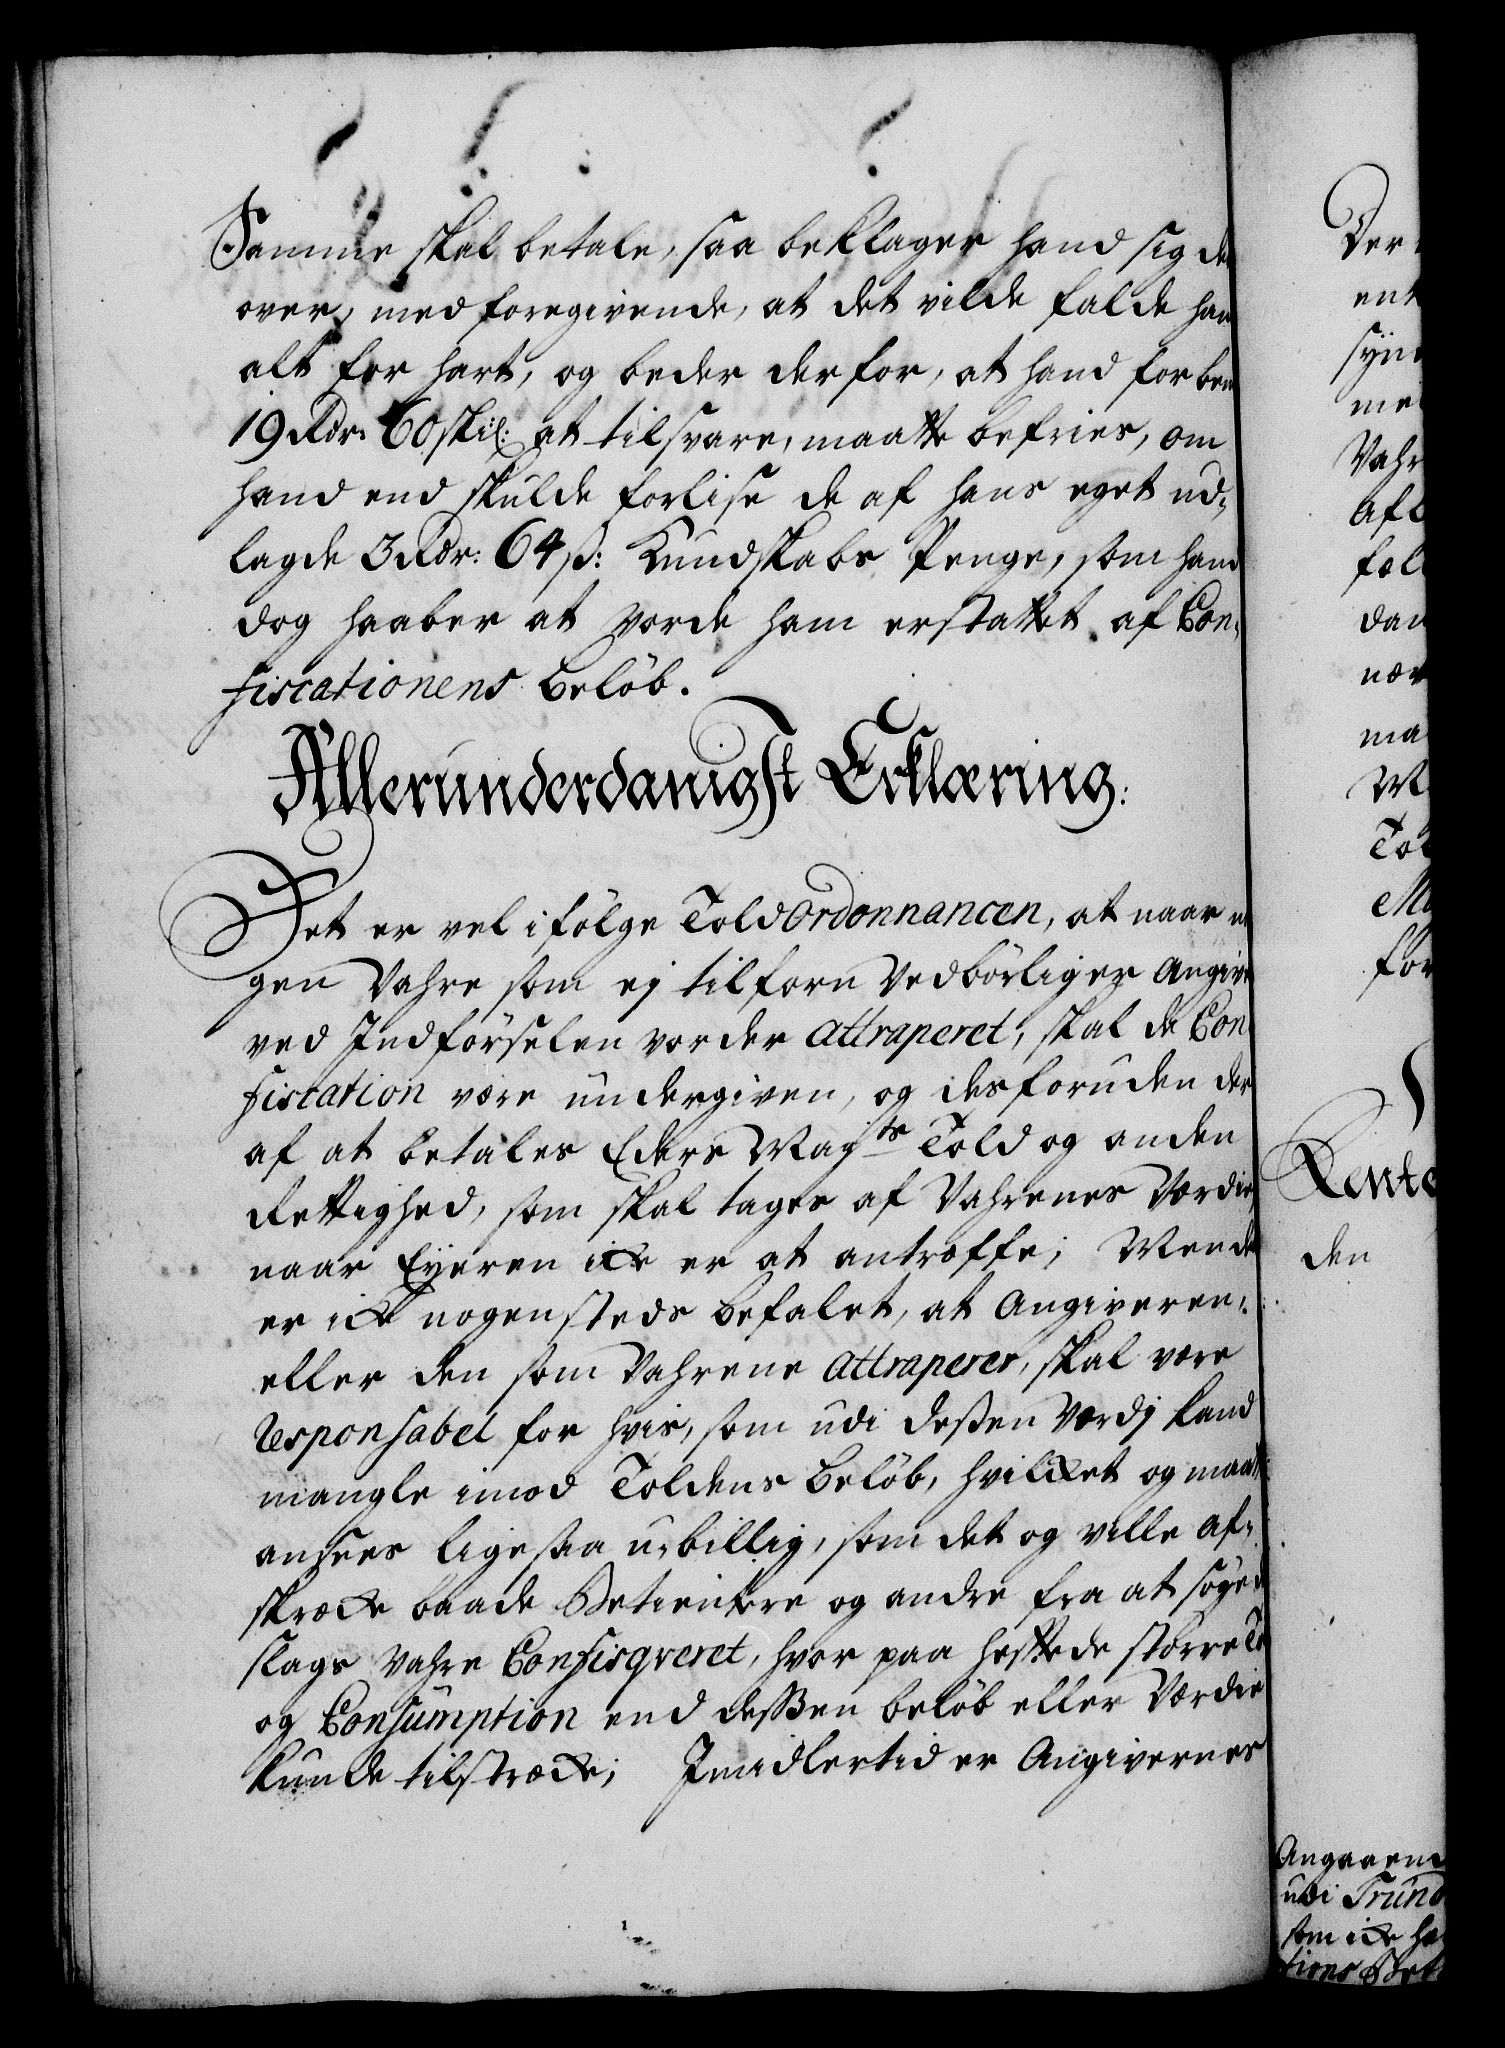 Samme skal betale, saa beklager hand sig der
over, med foregivende, at det vilde falde ham
alt for hart, og beder derfor, at hand for bem
19 Rdr. 60 skil: at tilsvare, maatte befries, om
hand end skulde forlise de af hans eget ud,
lagde 3 Rdr: 64 ß: Kundskabs Penge, som hand
dog haaber at vorde ham erstattet af Con,
fiscationens beløb.
Allerunderdanigst Erklæring:
Det er vel i følge Told Ordonnancen, at naar no
gen Vahre som ej tilforn Vedbørligen Angive
ved Indførselen vorder attraperet, skal de Con
fiscation være undergiven, og desforuden der
af at betales Eders Mayts Told og anden
Rettighed, som skal tages af Vahrenes Værdie
naar Eyeren icke er at antræffe; Men de
er icke nogensteds befalet, at Angiveren,
eller den som Vahrene attraperer, skal være
responsabel for hvis, som udi deßen Værdj kand
mangle imod Toldens beløb, hvilcket og maatte
ansees ligesaa u,billig, som det og ville af,
skrække baade Betientere og andre fra at søge d
slags Vahre Confisqveret, hvor paa heftede større To
og Consumption end deßen beløb eller Værdie
kunde tilstrække; Imidlertid er Angivernes
Der
ent
syn
me
Vahr
Afl
fæl
dan
nær
ma
Tol
for
Rente
den
Angaaend
udi Trund
som icke ha
tions Bet